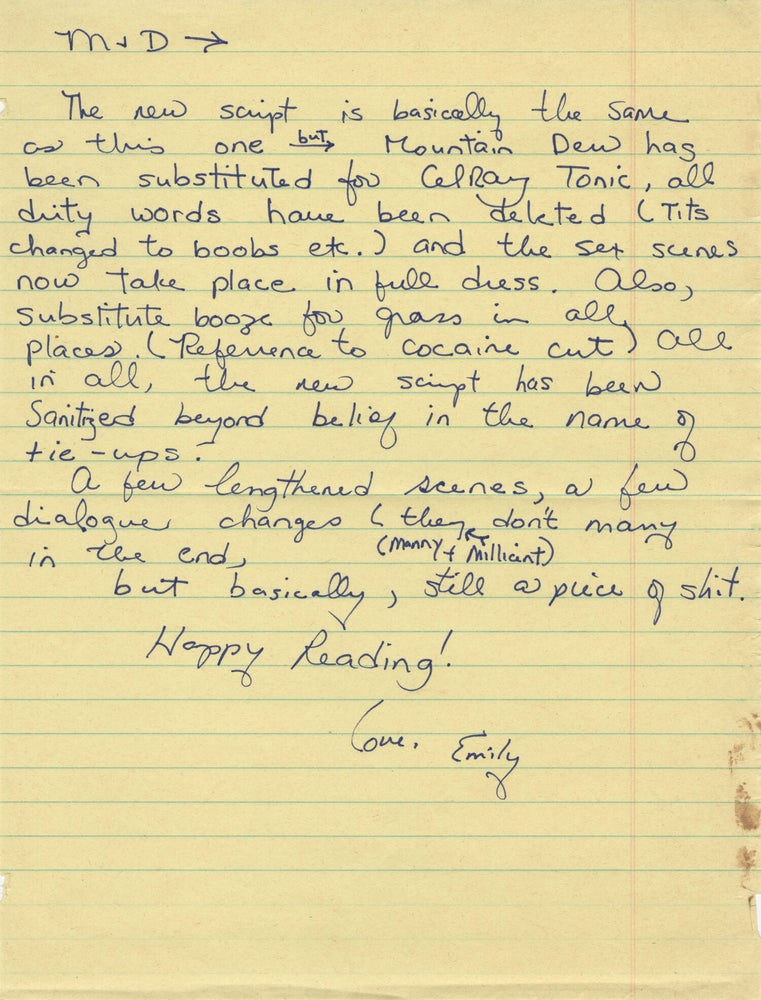 M + D →
The new script is basically the same
as this one but → Mountain Dew has
been substituted for CelRay Tonic, all
dirty words have been deleted (Tits
changed to boobs etc.) and the sex scenes
now take place in full dress. Also,
substitute booze for grass in all
places. (Reference to cocaine cut) All
in all, the new script has been
Sanitized beyond belief in the name of
tie-ups.
A few lengthened scenes, a few
dialogue changes (they don't marry
in the end, (Manny + Millicent)
but basically, still a piece of shit.
Happy Reading!
Love, Emily